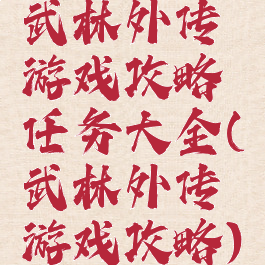 武林外传
游戏攻略
任务大全(
武林外传
游戏攻略)